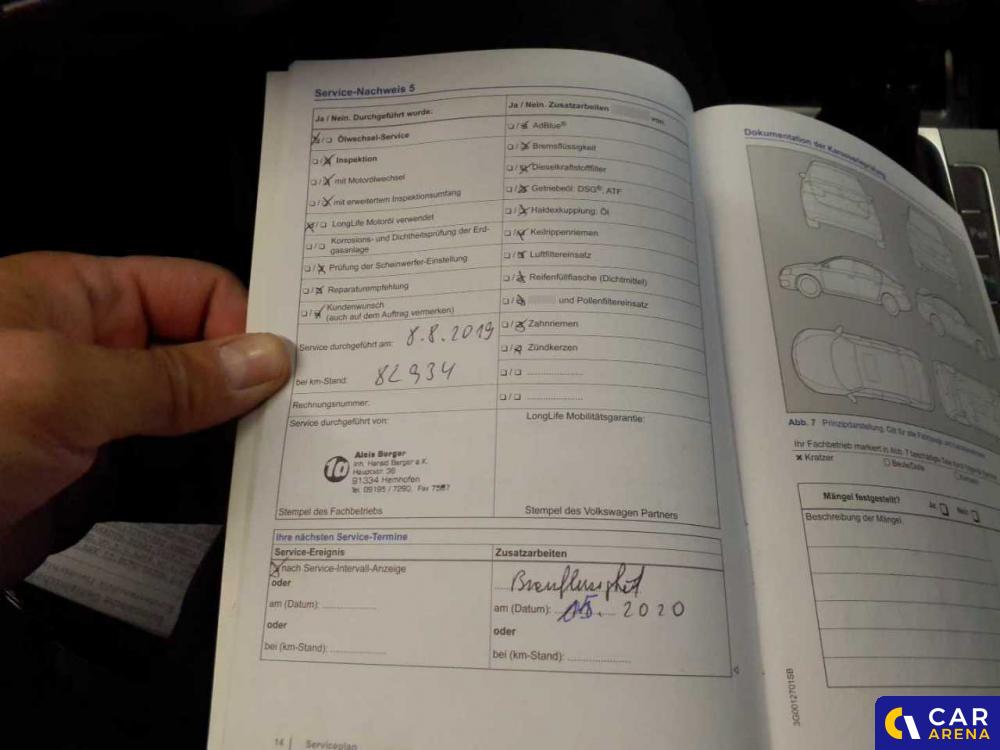 Service-Nachweis 5
Ja / Nein. Durchgeführt wurde:
Ölwechsel-Service
Inspektion
mit Motorölwechsel
mit erweitertem Inspektionsumfang
LongLife Motoröl verwendet
Korrosions- und Dichtheitsprüfung der Erd-
gasanlage
Prüfung der Scheinwerfer-Einstellung
Reparaturempfehlung
Kundenwunsch
(auch auf dem Auftrag vermerken)
Service durchgeführt am: 8.8.2019
bei km-Stand: 82934
Rechnungsnummer:
Service durchgeführt von:
1a
Alois Berger
Inh. Harald Berger e.K.
Hauptstr. 36
91334 Hemhofen
Tel. 09195 / 7290, Fax
Stempel des Fachbetriebs
Ja / Nein. Zusatzarbeiten von:
AdBlue®
Bremsflüssigkeit
Dieselkraftstofffilter
Getriebeöl: DSG®, ATF
Haldexkupplung: Öl
Keilrippenriemen
Luftfiltereinsatz
Reifenfüllflasche (Dichtmittel)
und Pollenfiltereinsatz
Zahnriemen
Zündkerzen
LongLife Mobilitätsgarantie:
Stempel des Volkswagen Partners
Ihre nächsten Service-Termine
Service-Ereignis
nach Service-Intervall-Anzeige
oder
am (Datum):
oder
bei (km-Stand):
Zusatzarbeiten
am (Datum): 05. 2020
oder
bei (km-Stand):
14 | Serviceplan
Dokumentation der Karosserieprüfung
Abb. 7 Prinzipdarstellung. Gilt für alle
Ihr Fachbetrieb markiert in Abb. 7
Kratzer
Beule/Delle
Mängel festgestellt?
Ja
Nein
Beschreibung der Mängel:
3G0012701SB
CAR
ARENA